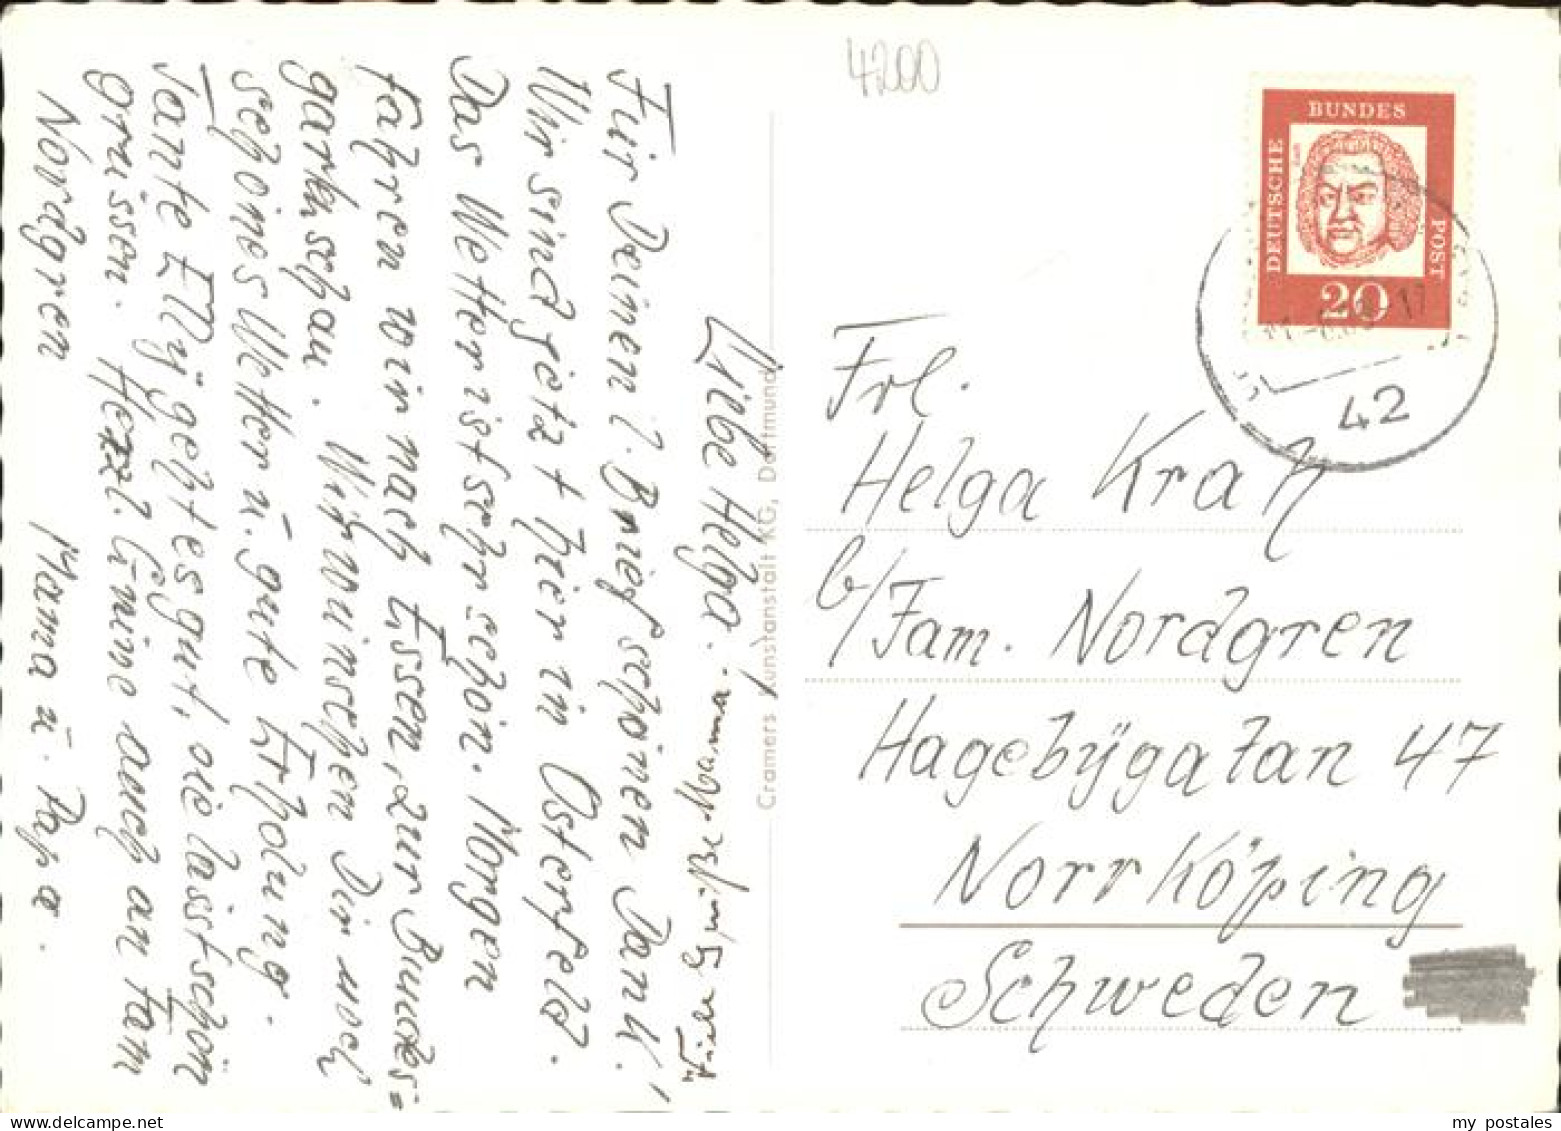 4200
DEUTSCHE
BUNDES
POST
20
42
Liebe Helga.
Für Deinen l. Brief schönen Dank!
Wir sind jetzt hier in Osterfeld.
Das Wetter ist sehr schön. Morgen
fahren wir nach Essen, zur Bundes=
gartenschau. Wir wünschen Dir noch
schönes Wetter u. gute Erholung.
Tante Elly geht es gut, sie lässt schön
grüssen. Herzl. Grüsse auch an Fam
Nordgren
Mama u. Papa.
Viele Grüße Mamma.
Cramers Kunstanstalt KG, Dortmund
Frl.
Helga Krah
b/Fam. Nordgren
Hagebygatan 47
Norrköping
Schweden
my postales